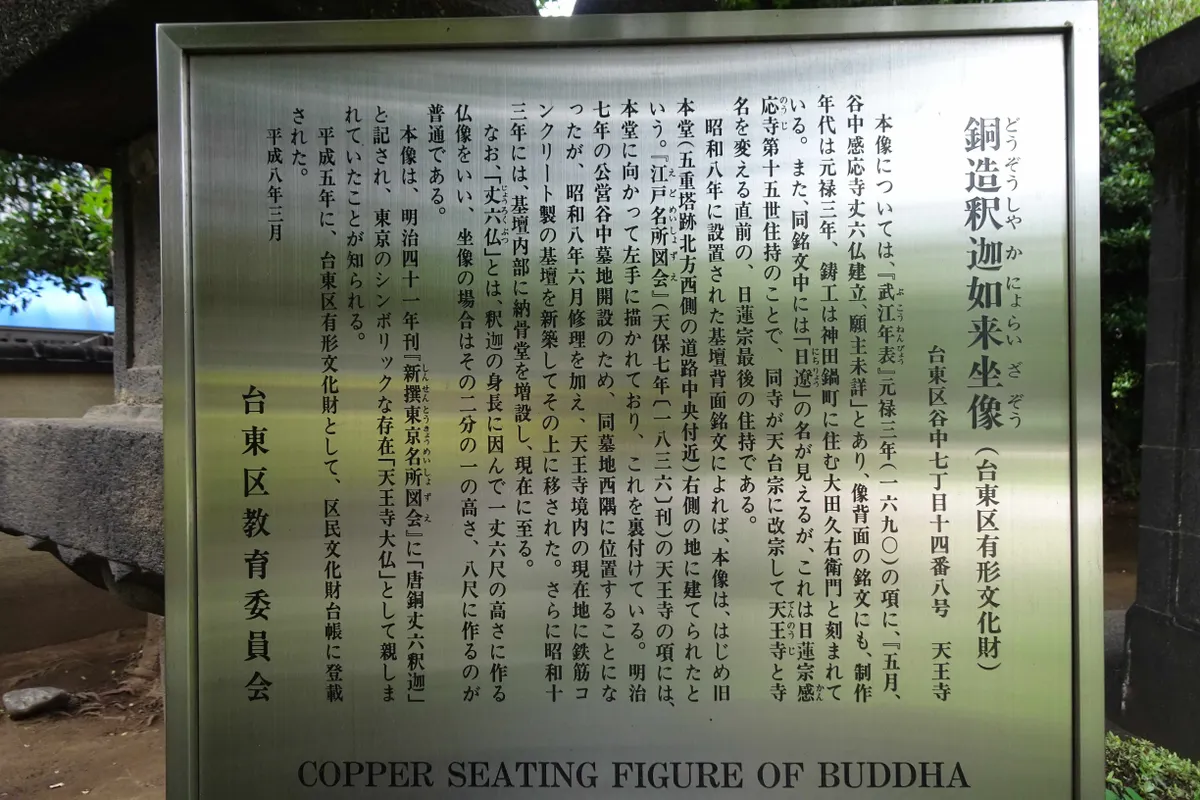 銅造釈迦如来坐像（台東区有形文化財）
どうぞうしやかによらいざぞう
台東区谷中七丁目十四番八号　天王寺
本像については、『武江年表』元禄三年（一六九〇）の項に、『五月、
ぶこうねんぴょう
谷中感応寺丈六仏建立、願主未詳」とあり、像背面の銘文にも、制作
年代は元禄三年、鋳工は神田鍋町に住む大田久右衛門と刻まれて
いる。また、同銘文中には「日遼」の名が見えるが、これは日蓮宗感
にちりょう
かん
応寺第十五世住持のことで、同寺が天台宗に改宗して天王寺と寺
のうじ
てんのうじ
名を変える直前の、日蓮宗最後の住持である。
昭和八年に設置された基壇背面銘文によれば、本像は、はじめ旧
本堂（五重塔跡北方西側の道路中央付近）右側の地に建てられたと
いう。『江戸名所図会』（天保七年〔一八三六〕刊）の天王寺の項には、
えどめいしょずえ
本堂に向かって左手に描かれており、これを裏付けている。明治
七年の公営谷中墓地開設のため、同墓地西隅に位置することにな
ったが、昭和八年六月修理を加え、天王寺境内の現在地に鉄筋コ
ンクリート製の基壇を新築してその上に移された。さらに昭和十
三年には、基壇内部に納骨堂を増設し、現在に至る。
なお、「丈六仏」とは、釈迦の身長に因んで一丈六尺の高さに作る
じょうろくぶつ
仏像をいい、坐像の場合はその二分の一の高さ、八尺に作るのが
普通である。
本像は、明治四十一年刊『新撰東京名所図会』に「唐銅丈六釈迦」
しんせんとうきょうめいしょずえ
と記され、東京のシンボリックな存在「天王寺大仏」として親しま
れていたことが知られる。
平成五年に、台東区有形文化財として、区民文化財台帳に登載
された。
平成八年三月
台東区教育委員会
COPPER SEATING FIGURE OF BUDDHA